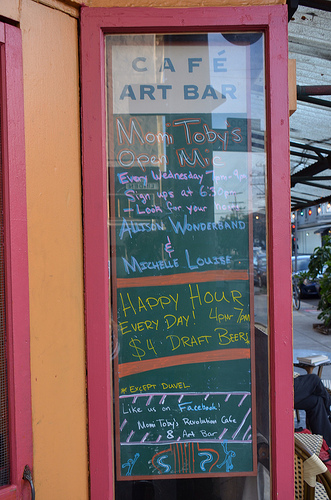 CAFÉ
ART BAR
Momi Toby's
Open Mic
Every Wednesday 7pm-9pm
Sign ups at 6:30pm
- Look for your
ALISON WONDERBAND
&
MICHELLE LOUISE
HAPPY HOUR
EVERY DAY! 4pm 7pm
$4 DRAFT BEERS
* EXCEPT DUVEL
Like us on Facebook!
Momi Toby's Revolution Cafe
& Art Bar